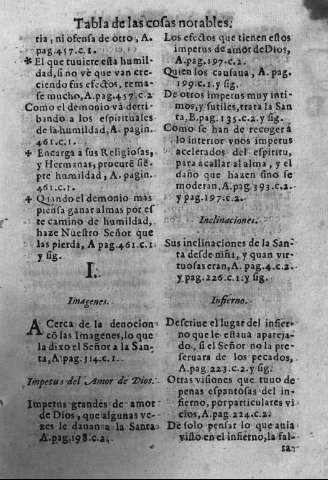 Tabla de las cosas notables.
ria, ni ofensa de otro, A.
pag.457.c.1.
✠ El que tuuiere esta humil-
dad, si no vè que van cre-
ciendo sus efectos, rema-
se mucho, A.pag.457.c.2
Como el demonio và derri-
bando a los espirituales
de la humildad, A. pagin.
461.c.1.
✠ Encarga a sus Religiosas,
y Hermanas, procurē siē-
pre humildad, A. pagin.
461.c.1.
✠ Quando el demonio mas
piensa ganar almas por es
te camino de humildad,
haze Nuestro Señor que
las pierda, A pag.461.c.1
y sig.
I.
Imagenes.
ACerca de la deuocion
cõ las Imagenes, lo que
la dixo el Señor a la San-
ta, A pag.314.c.1.
Impetus del Amor de Dios.
Impetus grandes de amor
de Dios, que algunas ve-
zes le dauan a la Santa
A.pag.198.c.2.
Los efectos que tienen estos
impetus de amor de Dios,
A.pag.197.c.2.
Quien los causaua, A. pag.
199.c.1. y sig.
De otros impetus muy inti-
mos, y sutiles, trata la San
ta, B.pag.135.c.2. y sig.
Como se han de recoger à
lo interior vnos impetus
acelerados del espiritu,
para acallar al alma, y el
daño que hazen sino se
moderan, A.pag.393.c.2.
y pag.197.c.2.
Inclinaciones.
Sus inclinaciones de la San-
ta desde niña, y quan vir-
tuosas eran, A.pag.4.c.2.
y pag.226.c.1.y sig.
Infierno.
Descriue el lugar del infier-
no que le estaua apareja-
do, si el Señor no la pre-
seruara de los pecados,
A.pag.223.c.2.y sig.
Otras visiones que tuuo de
penas espantosas del in-
fierno, por particulares vi
cios, A.pag.224.c.2.
De solo pensar lo que auia
visto en el infierno, la fal-
ta-